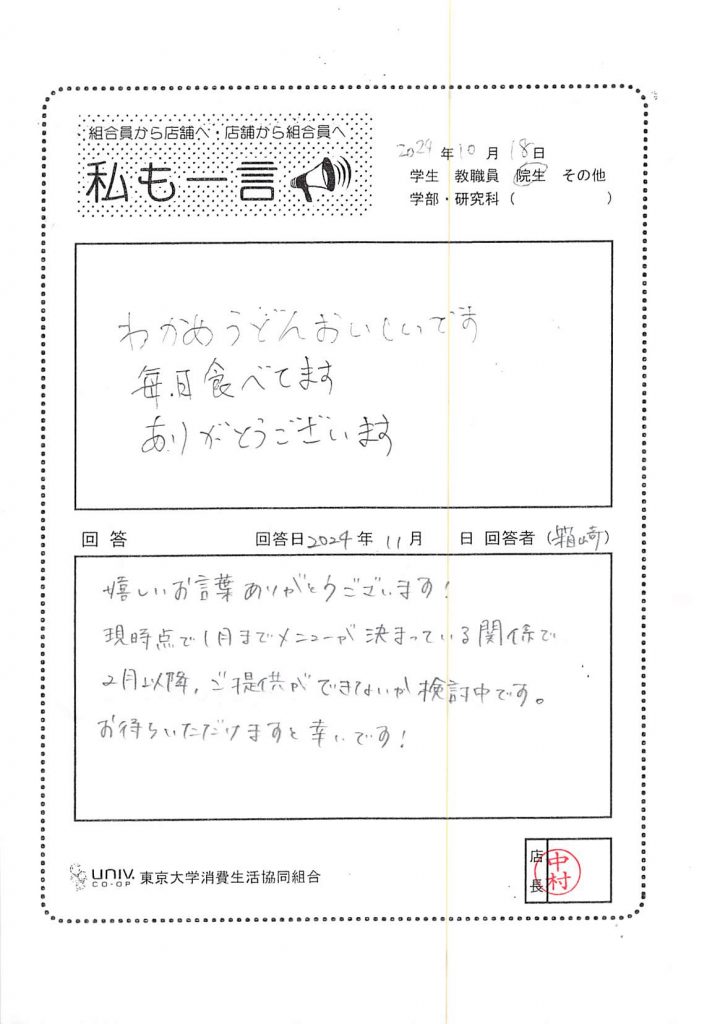 組合員から店舗へ・店舗から組合員へ
私も一言
2024年10月18日
学生 教職員 院生 その他
学部・研究科( )
わかめうどんおいしいです
毎日食べてます
ありがとうございます
回答 回答日2024年11月 日 回答者(箱崎)
嬉しいお言葉ありがとうございます!
現時点で1月までメニューが決まっている関係で
2月以降、ご提供ができないか検討中です。
お待ちいただけますと幸いです!
UNIV. CO-OP 東京大学消費生活協同組合
店長 中村